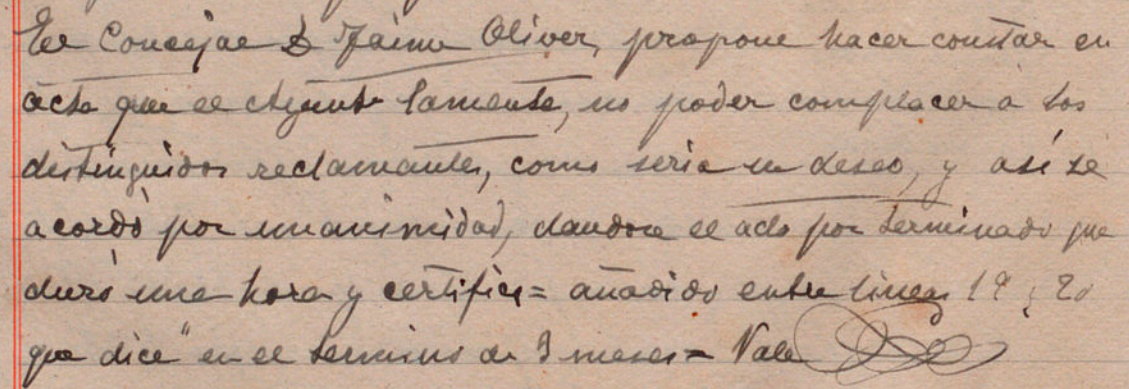 El Concejal D Jaime Oliver, propone hacer constar en
acta que el Ayunt lamenta, no poder complacer a los
distinguidos reclamantes, como seria su deseo, y así se
acordó por unanimidad, dandose el acto por terminado que
duró una hora y certifico = añadido entre lineas 19 y 20
que dice "en el termino de 3 meses = Vale